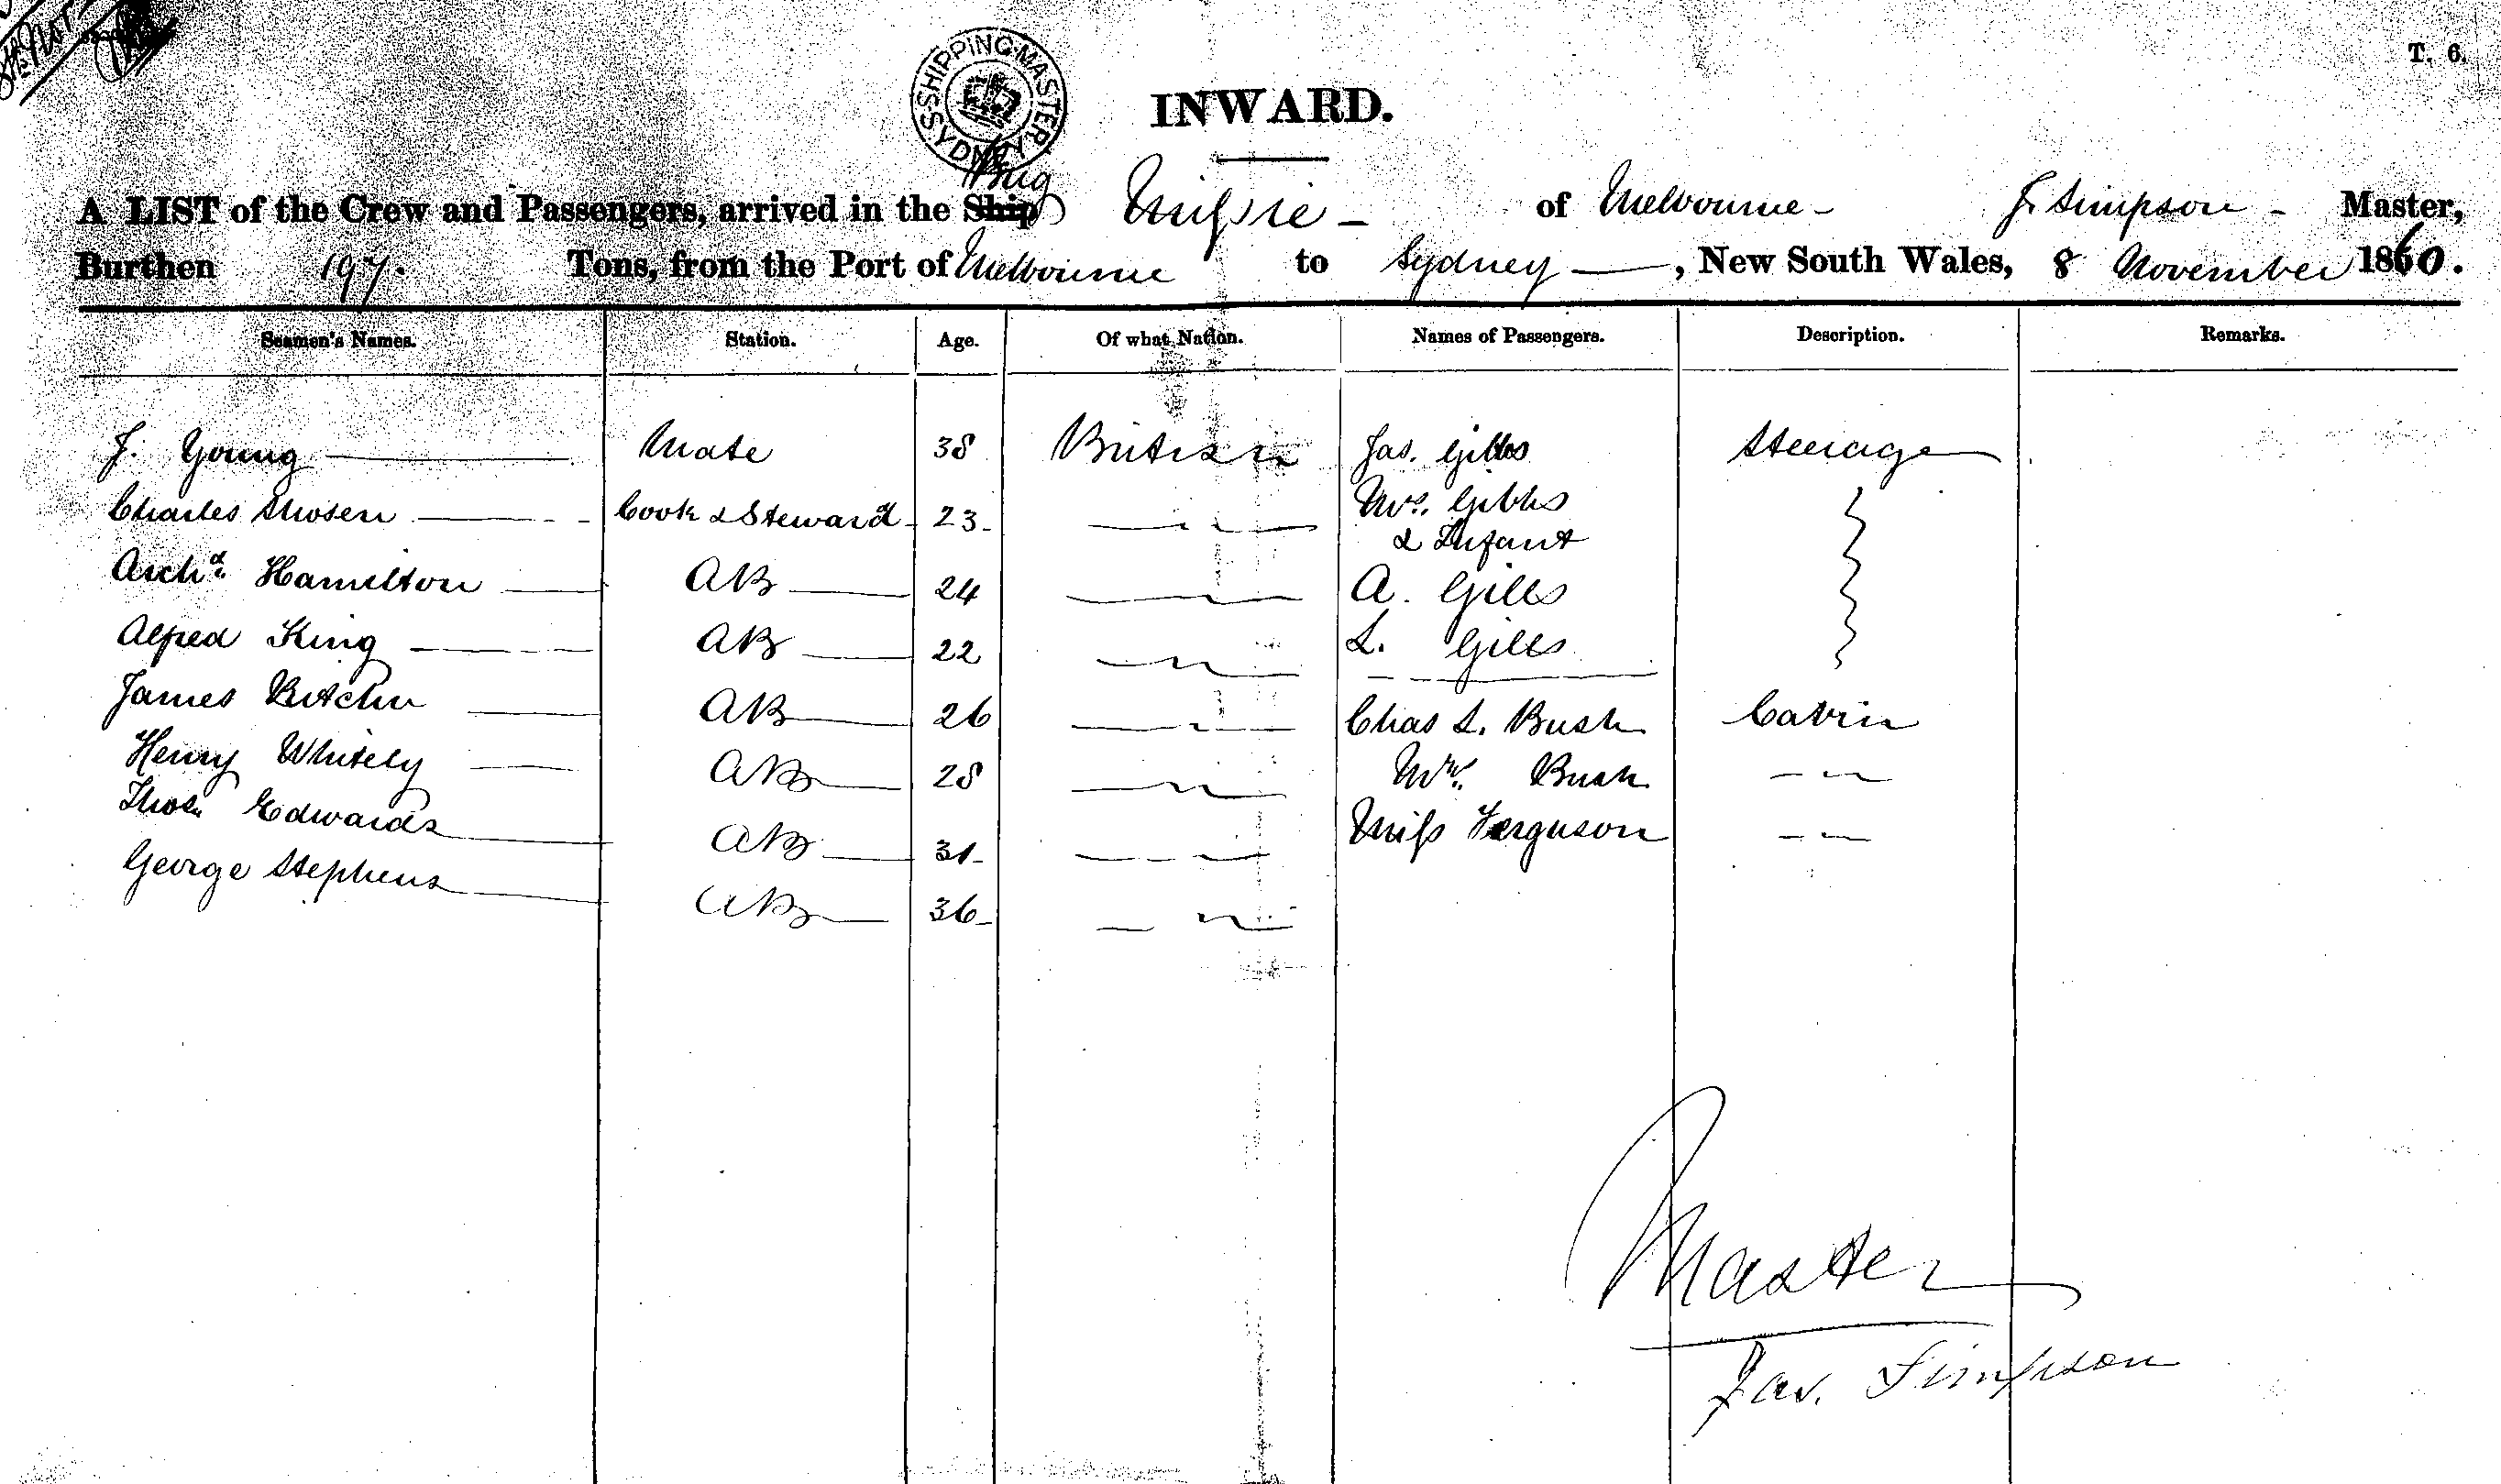 SHIPPING MASTER SYDNEY
T. 6.
INWARD.
Brig
A LIST of the Crew and Passengers, arrived in the Ship Missie - of Melbourne - J. Simpson - Master,
Burthen 197. Tons, from the Port of Melbourne to Sydney —, New South Wales, 8 November 1860.
Seamen's Names. Station. Age. Of what Nation. Names of Passengers. Description. Remarks.
J. Young Mate 38 British Jas. Gibbs Steerage
Charles Cook & Steward 23 Mrs. Gibbs
& Infant
Archd. Hamilton AB 24 A. Gibbs
Alfred King AB 22 L. Gibbs
James Butcher AB 26 Chas L. Bush Cabin
Henry Whitely AB 28 Mrs. Bush
Thos. Edwards AB 31 Miss Ferguson
George Stephens AB 36
Master
Jas. Simpson